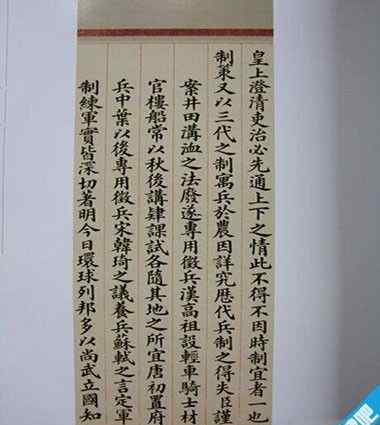 皇上澄清吏治必先通上下之情此不得不因時制宜者一也
制策又以三代之制寓兵於農因詳究歷代兵制之得失臣謹
案井田溝洫之法廢遂專用徵兵漢高祖設輕車騎士材
官樓船常以秋後講肄課試各隨其地之所宜唐初置府
兵中葉以後專用徵兵宋韓琦之議養兵蘇軾之言定軍
制練軍實皆深切著明今日環球列邦多以尚武立國知
吧